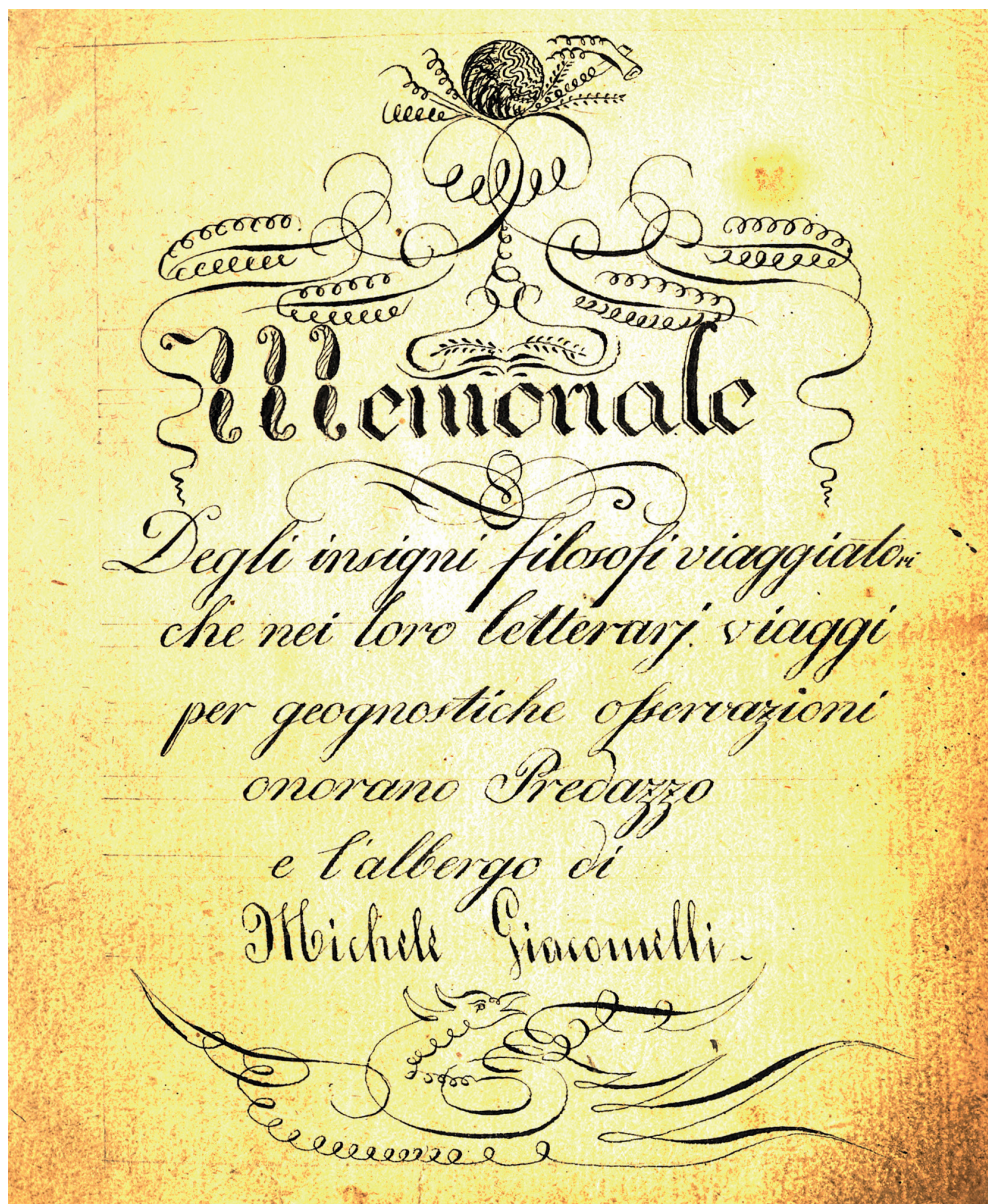 Memoriale
Degli insigni filosofi viaggiatori
che nei loro letterarj. viaggi
per geognostiche osservazioni
onorano Predazzo
e l'albergo di
Michele Giacomelli.